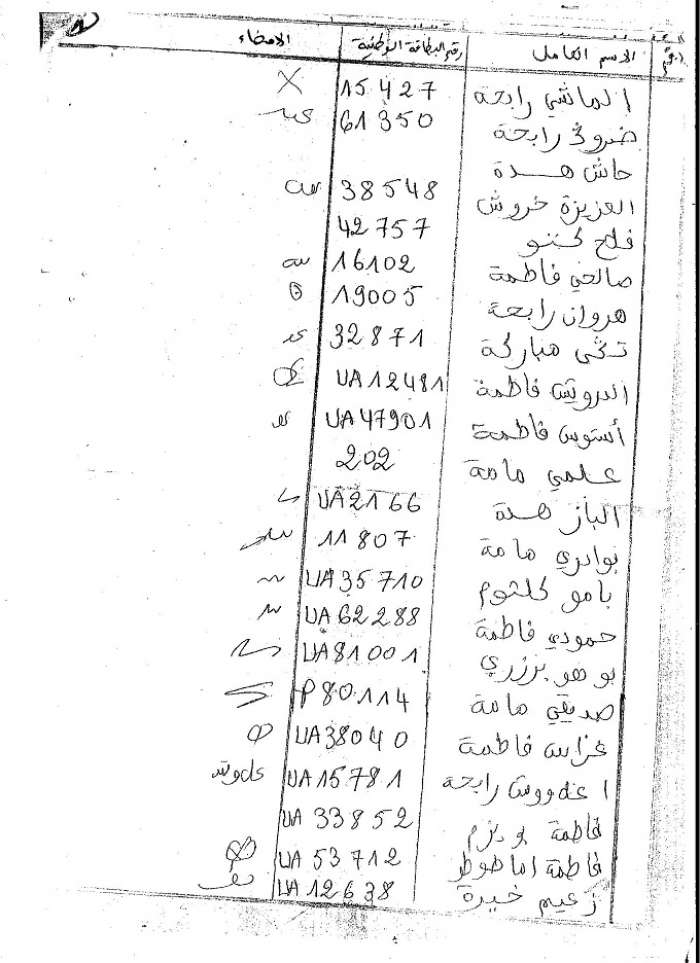 الاسم الكامل رقم البطاقة الوطنية الامضاء
الماشي رابحة 15427
ضروي رابحة 61350
حاش هدة
العزيزة خروش 38548
فلح كنو 42757
صالحي فاطمة 16102
هروان رابحة 19005
تكي مباركة 32871
الدرويش فاطمة UA12481
أستوس فاطمة UA47901
علمي مامة 202
الباز هدة UA2166
بوادري مامة 11807
بامو كلثوم UA35710
حمودي فاطمة UA62288
بوهو برزري UA81001
صديقي مامة P80114
غراس فاطمة UA38040
اعدووش رابحة UA15781
فاطمة بويزم UA 33852
فاطمة اماطوط UA 53712
زعيم خيرة UA 12638